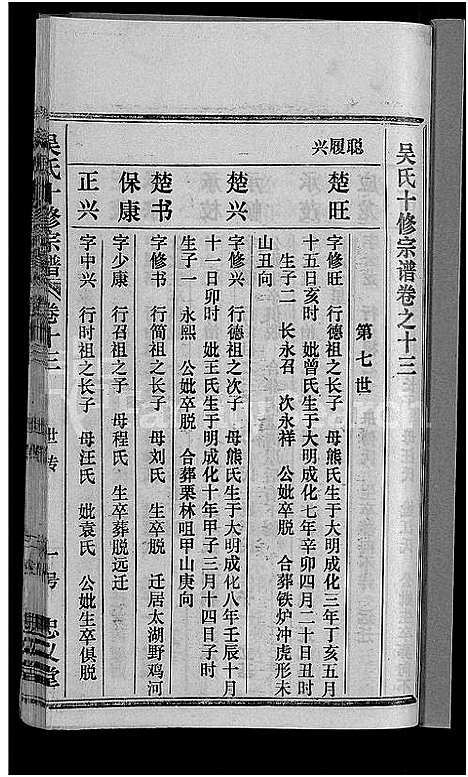 吴氏十修宗谱卷之十三
第七世
聪履兴
楚旺
字修旺 行德祖之长子 母熊氏生于大明成化三年丁亥五月
十五日亥时 妣曾氏生于大明成化七年辛卯四月二十日丑时
生子二 长永召 次永祥 公妣卒脱 合葬铁炉冲虎形未
山丑向
楚兴
字修兴 行德祖之次子 母熊氏生于大明成化八年壬辰十月
十一日卯时 妣王氏生于明成化十年甲子三月十四日子时
生子一 永熙 公妣卒脱 合葬栗林咀甲山庚向
楚书
字修书 行简祖之长子 母刘氏 生卒脱 迁居太湖野鸡河
保康
字少康 行召祖之子 母程氏 生卒葬脱远迁
正兴
字中兴 行时祖之长子 母汪氏 妣袁氏 公妣生卒俱脱
吴氏十修宗谱 卷十三 世传 一号 忠义堂